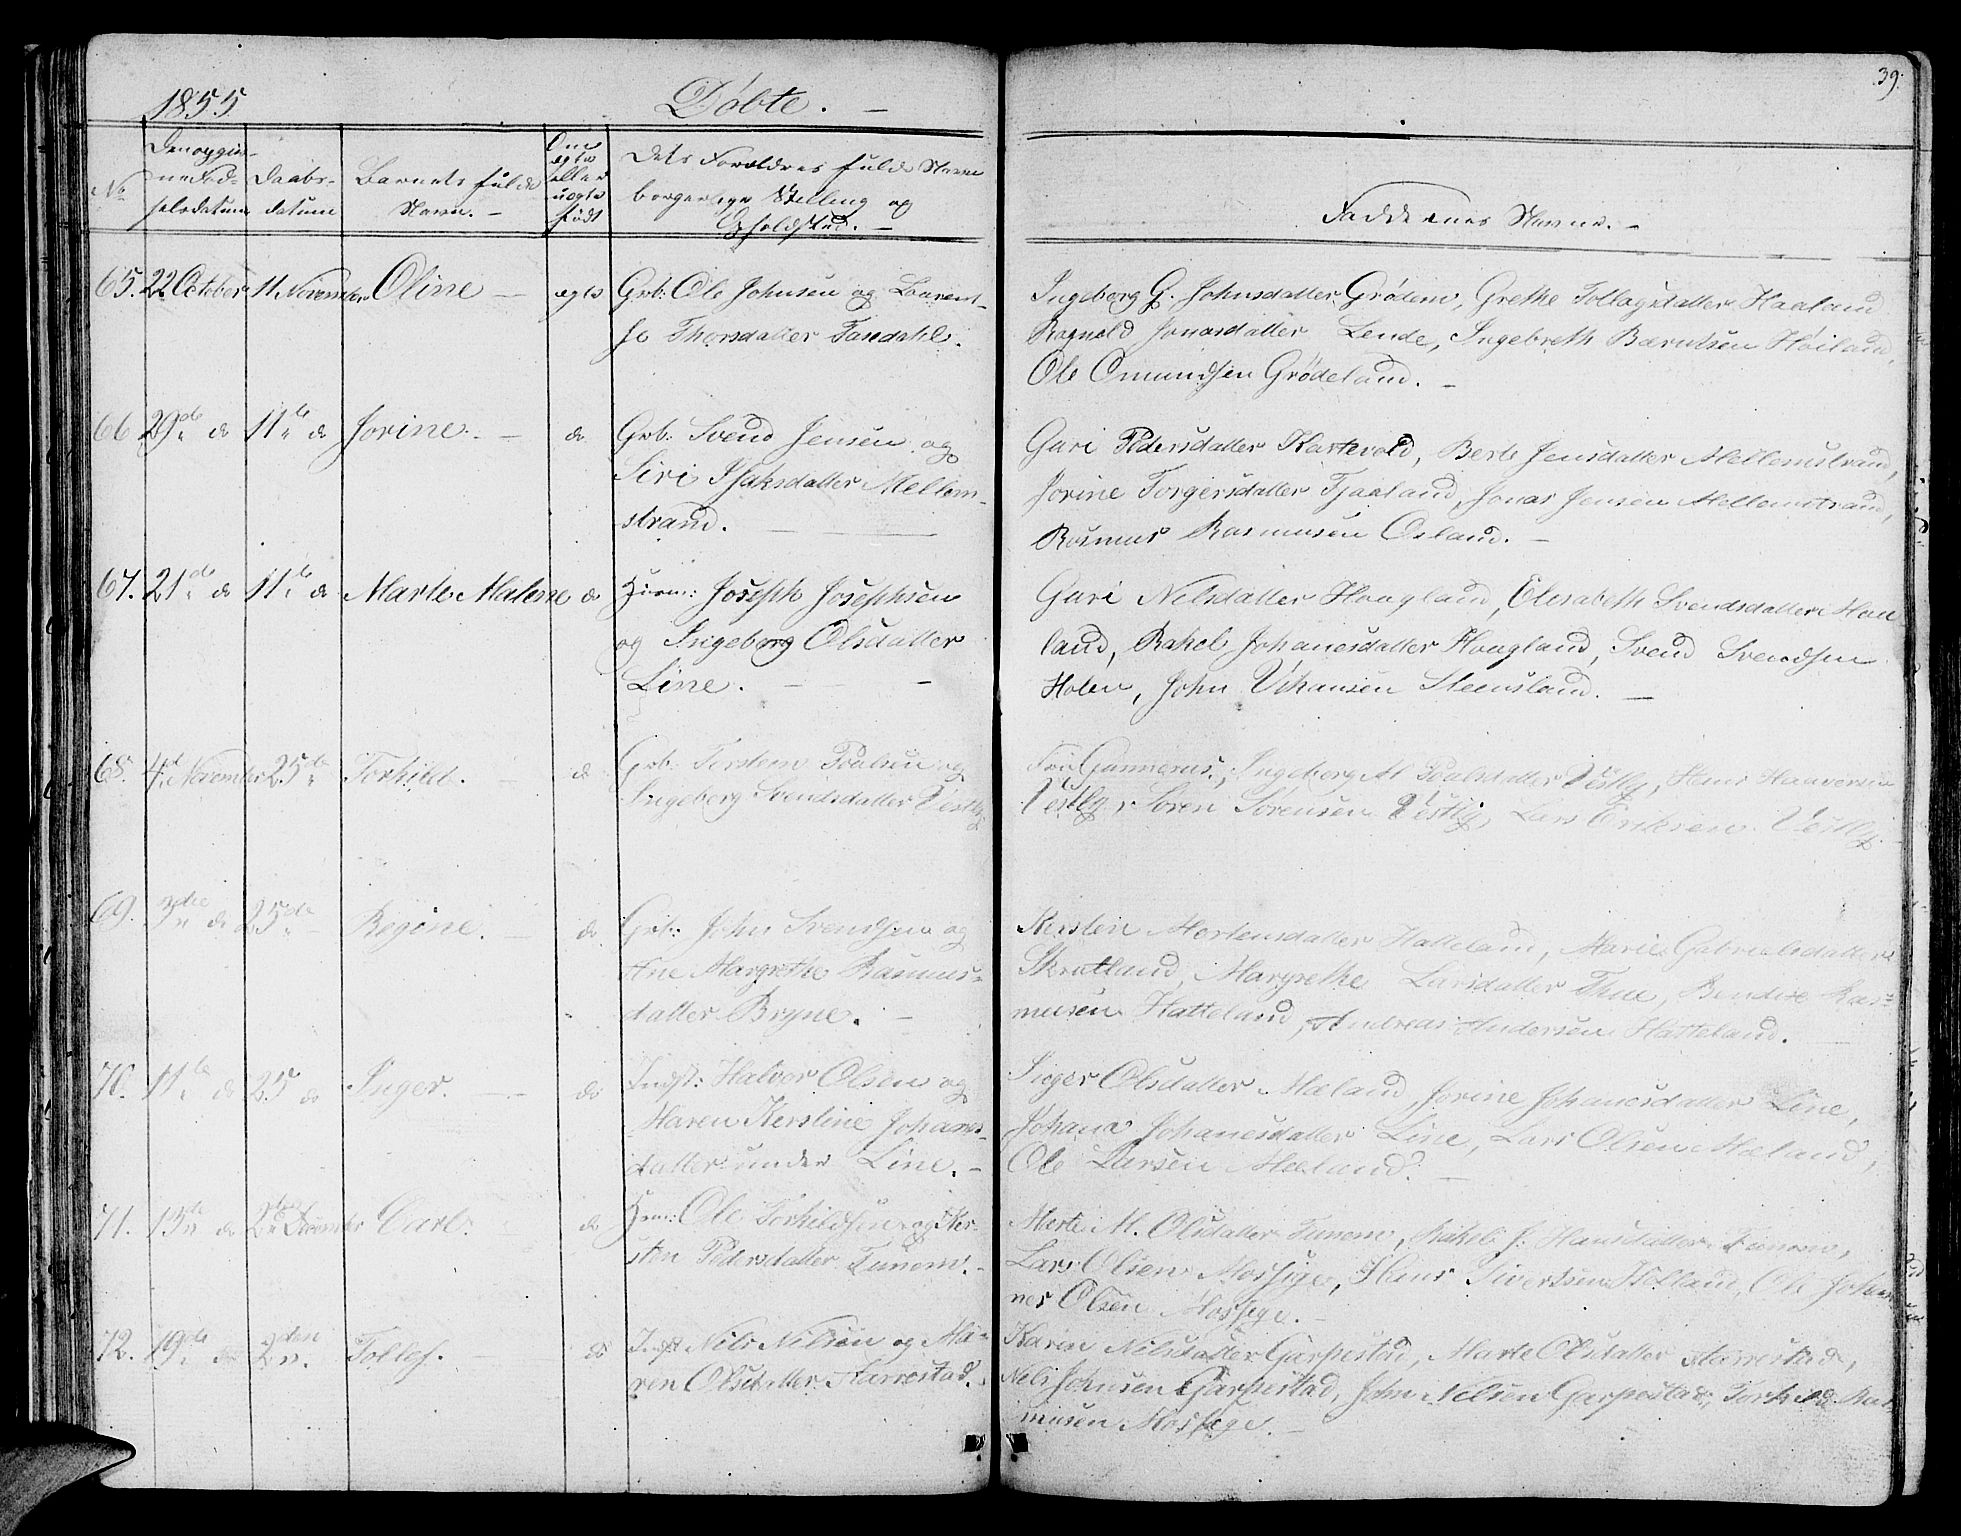 39.
1855
Døbte. —
No
Den opgivne Fødselsdatum
Daabsdatum
Barnets fulde Navn. —
Om ægte eller uægte født
Dets Forældres fulde Navne borgerlige Stilling og Opholdsted. —
Faddernes Navne. —
65. 22 October 11 November Oline — ægte Grb: Ole Johnsen og Laurent-
se Thorsdatter Tasdahl.
Ingeborg G. Johnsdatter Grødem, Grethe Tollagsdatter Haaland
Ragnald Jonasdatter Lende, Ingebreth Berntsen Høiland,
Ole Omundsen Grødeland. —
66 29de do 11te do Jorine. — do. Grb: Svend Jensen og
Siri Isaksdatter Mellem-
strand. —
Guri Pedersdatter Hartevold, Berte Jensdatter Mellemstrand,
Jorine Torgersdatter Tjaaland, Jonas Jensen Mellemstrand,
Rasmus Rasmusen Osland. —
67. 21de do 11te do Marte Malene do Huusm: Joseph Josephsen
og Ingeborg Olsdatter
Line. — —
Guri Nilsdatter Haagland, Elisabeth Svendsdatter Haa
land, Rakel Johanesdatter Haagland, Svend Svendsen
Holen, John Johansen Steensland. —
68. 4de November 25de Torkild. — do Grb: Torstein Poulsen og
Ingeborg Svendsdatter Vestly
Fru Gunnerus, Ingeborg M Poulsdatter Vestly, Hans Haaversen
Vestly, Søren Sørensen Vestly, Lars Eriksen Vestly.
69. 3die do 25de — Regine. — do. Grb: John Svendsen og
Ane Margrethe Rasmus-
datter Bryne. —
Kersten Mortensdatter Hatteland, Marie Gabrielsdatter
Skrutland, Margrethe Larsdatter Thue, Bendix Ras-
musen Hatteland, Andreas Andersen Hatteland.
70. 11te do 25 do Inger. — do Indst: Halvor Olsen og
Maren Kerstine Johanes-
datter under Line. —
Siger Olsdatter Mæland, Jorine Johanesdatter Line,
Johana Johanesdatter Line, Lars Olsen Mæland,
Ole Larsen Mæland. —
71. 13de do 2den December Carl. do Hsm: Ole Torkildsen og Ker-
sten Pedersdatter Tunem. —
Marte M. Olsdatter Tunem, Rakel J. Hansdatter Tunem,
Lars Olsen Mossige, Hans Sivertsen Holland, Ole Johan-
nes Olsen Mossige. —
72. 19de do 2den Tollef. — do Indst Nils Nilsen og Ma-
ren Olsdatter Aarrestad.
Karen Nilsdatter Garpestad, Marte Olsdatter Aarrestad,
Nels Johnsen Garpestad, John Nilsen Garpestad, Torkild Ras-
musen Mossige. —